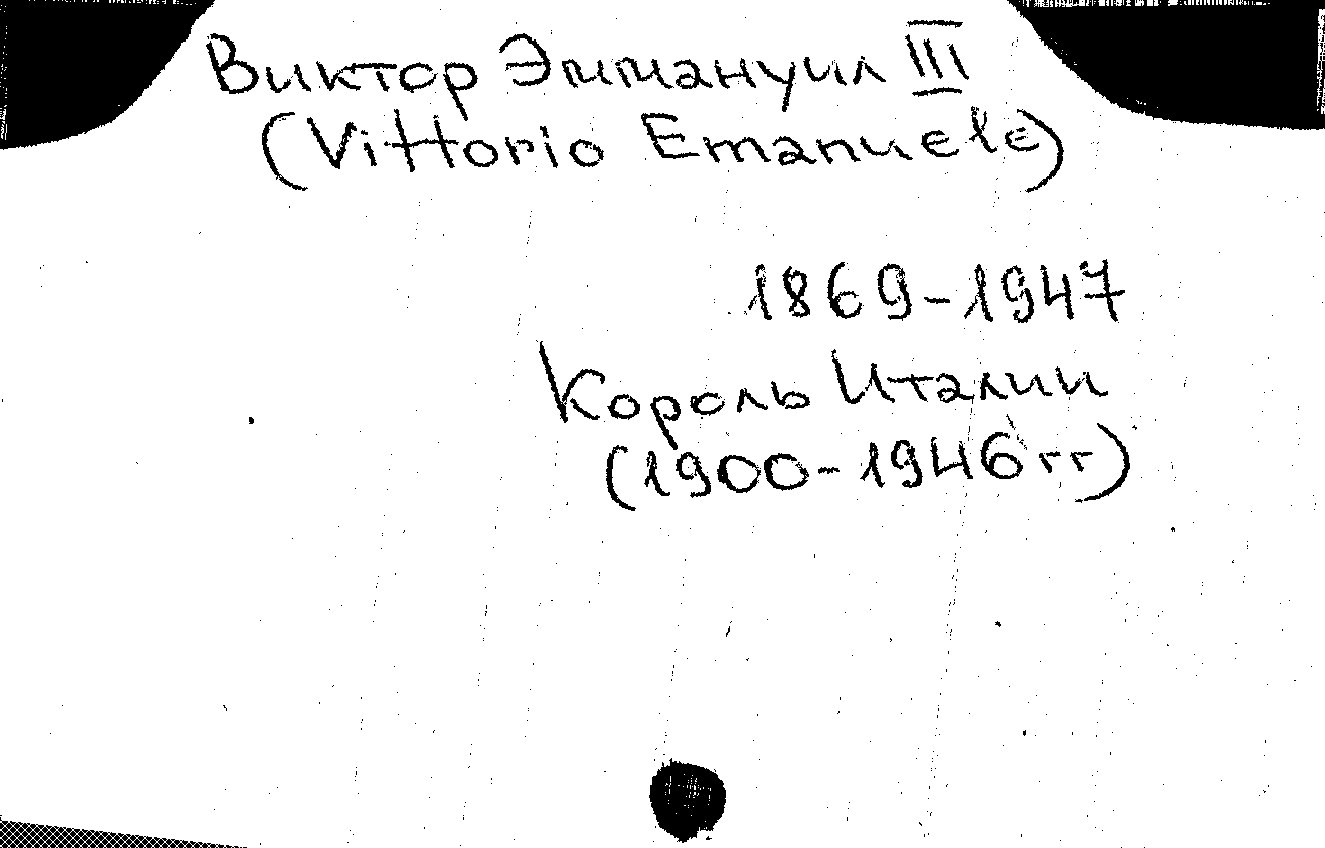 Виктор Эммануил III
(Vittorio Emanuele)
1869-1947
Король Италии
(1900-1946 гг)